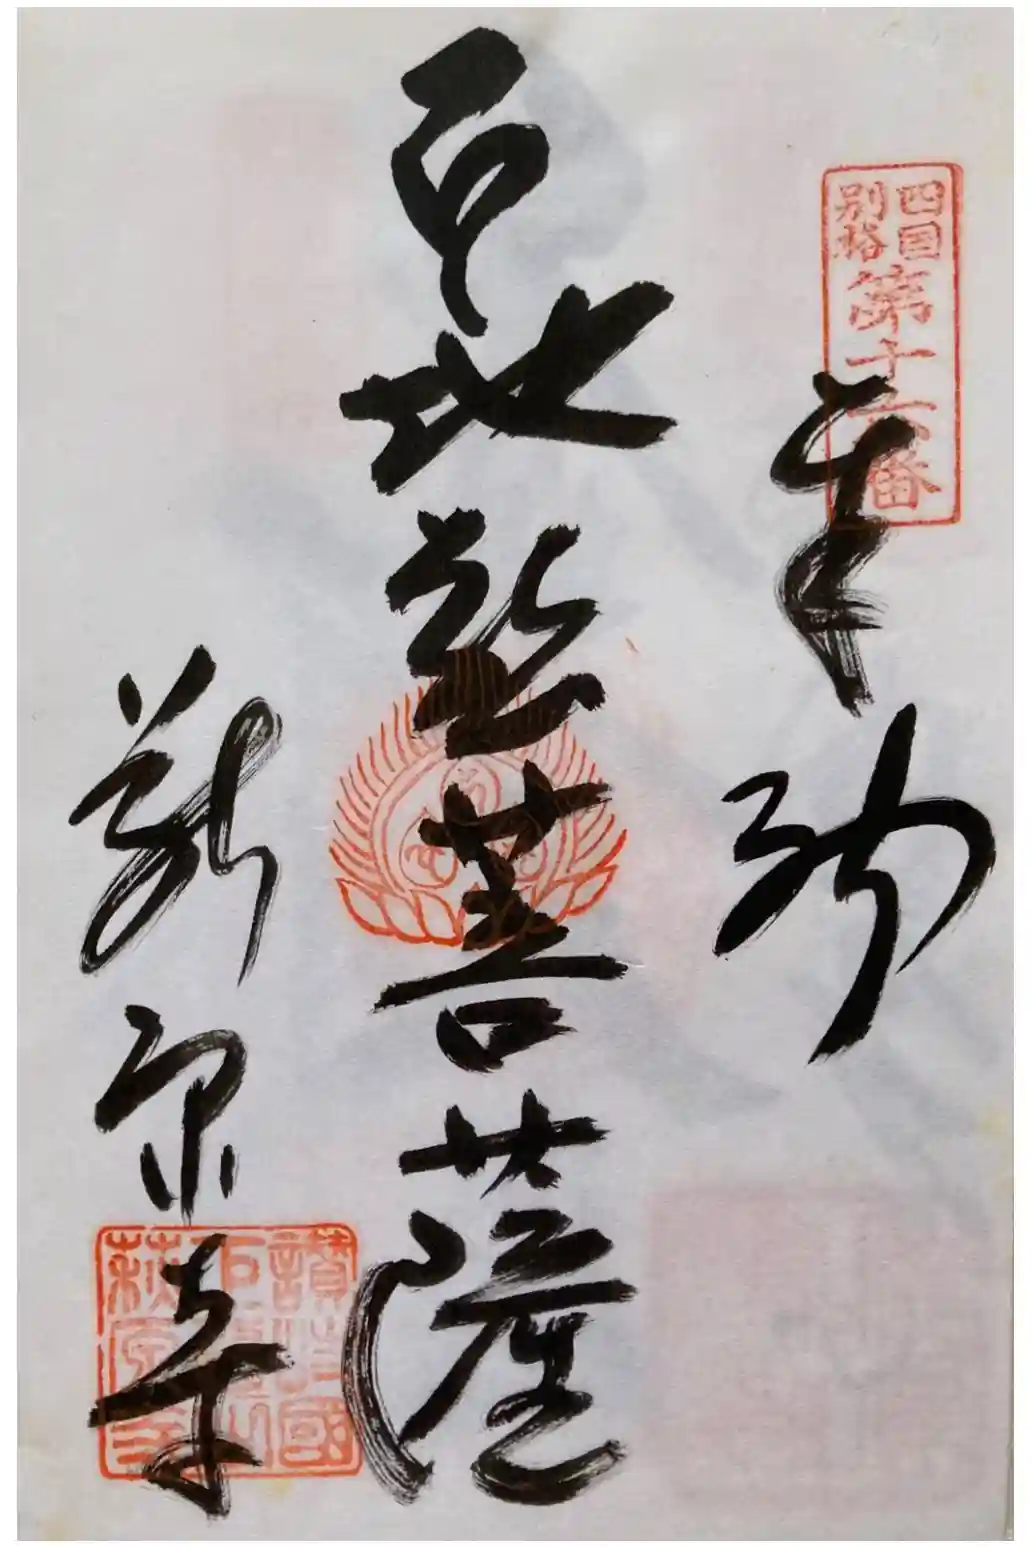 四国
別格
第十六番
奉納
地蔵菩薩
萩原寺
讃岐國
巨鼇山
萩原寺